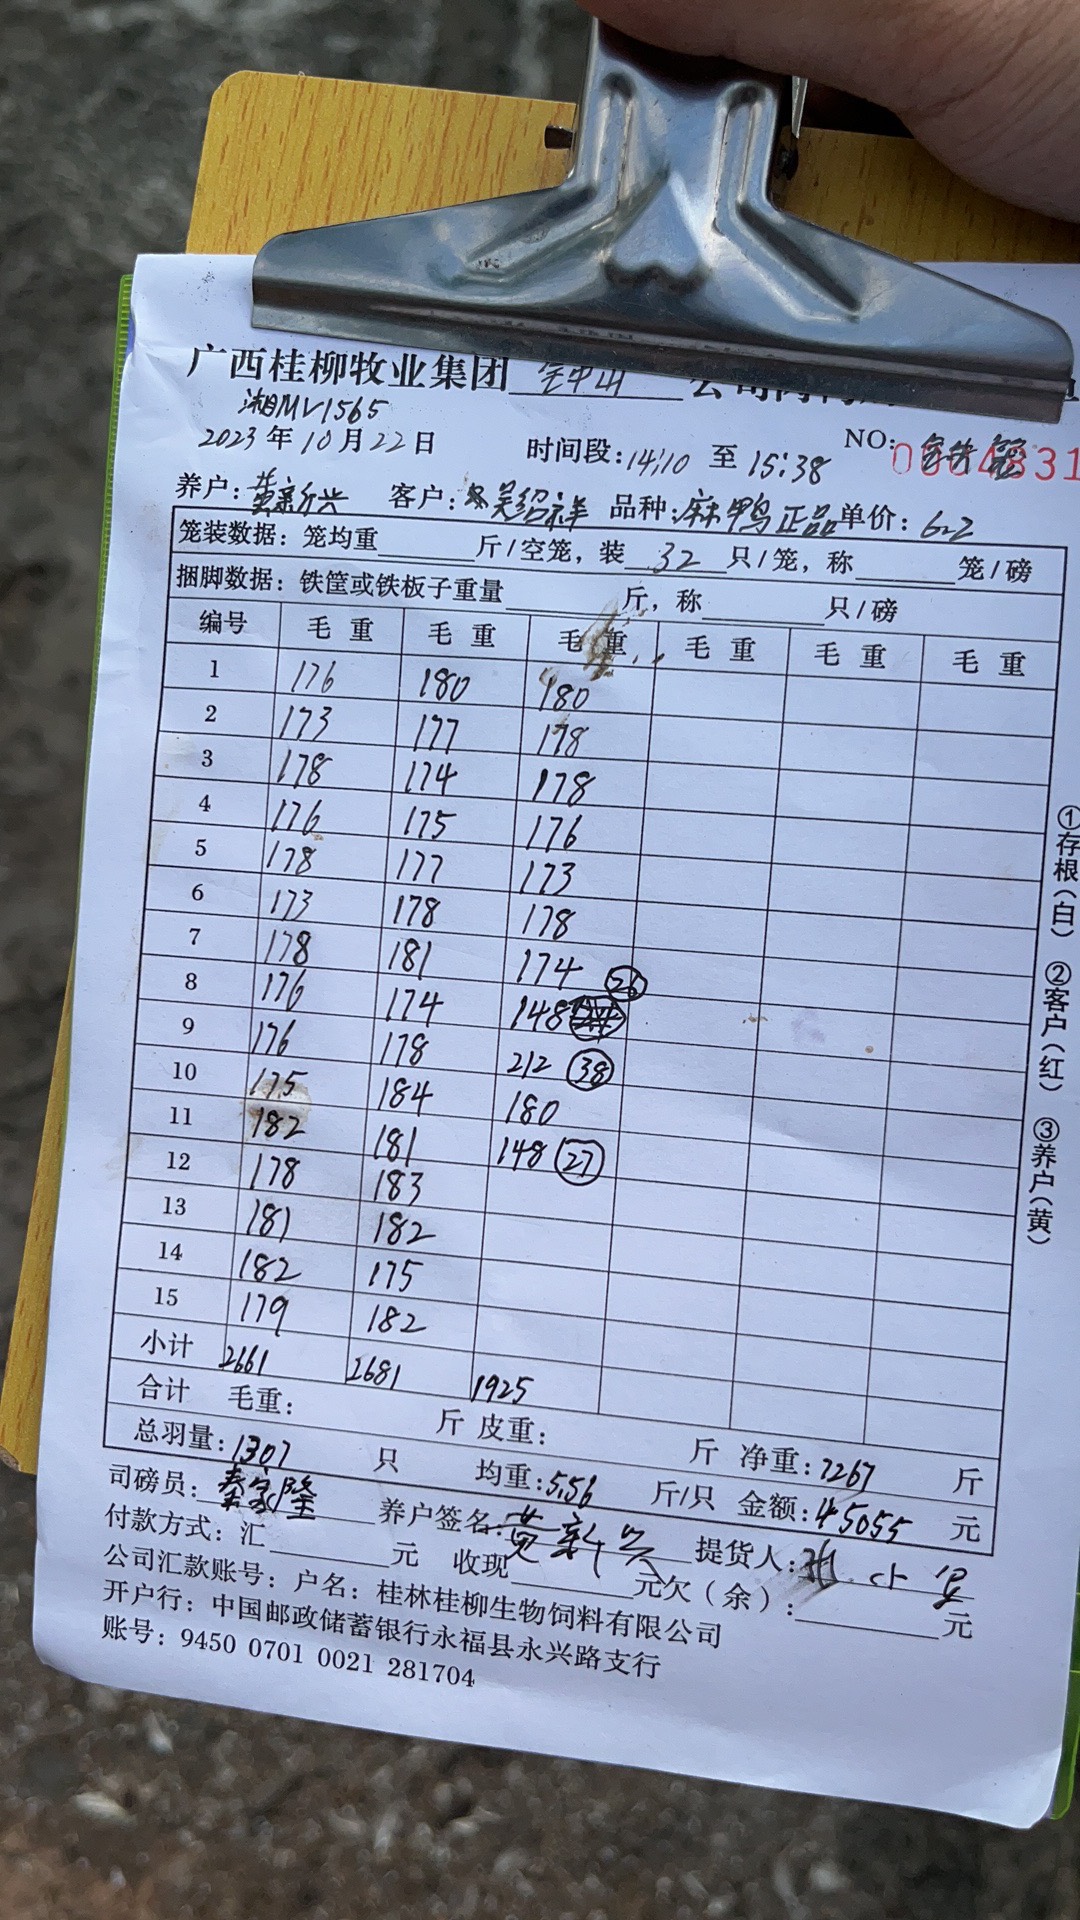 广西桂柳牧业集团
湘MV1565
2023年10月22日 时间段:14:10 至 15:38 NO:
养户:黄新兴 客户:吴绍祥 品种:麻鸭正品 单价:6.2
笼装数据:笼均重 斤/空笼,装 32 只/笼,称 笼/磅
捆脚数据:铁筐或铁板子重量 斤,称 只/磅
编号 毛重 毛重 毛重 毛重 毛重 毛重
1 176 180 180
2 173 177 178
3 178 174 178
4 176 175 176
5 178 177 173
6 173 178 178
7 178 181 174
8 176 174 148 26
9 176 178 212 38
10 175 184 180
11 182 181 148 27
12 178 183
13 181 182
14 182 175
15 179 182
小计 2661 2681 1925
合计 毛重: 斤 皮重: 斤 净重:7267 斤
总羽量:1307 只 均重:5.56 斤/只 金额:45055 元
司磅员:秦家隆 养户签名:黄新兴 提货人:
付款方式:汇 元 收现 元欠(余): 元
公司汇款账号:户名:桂林桂柳生物饲料有限公司
开户行:中国邮政储蓄银行永福县永兴路支行
账号:9450 0701 0021 281704
①存根(白) ②客户(红) ③养户(黄)